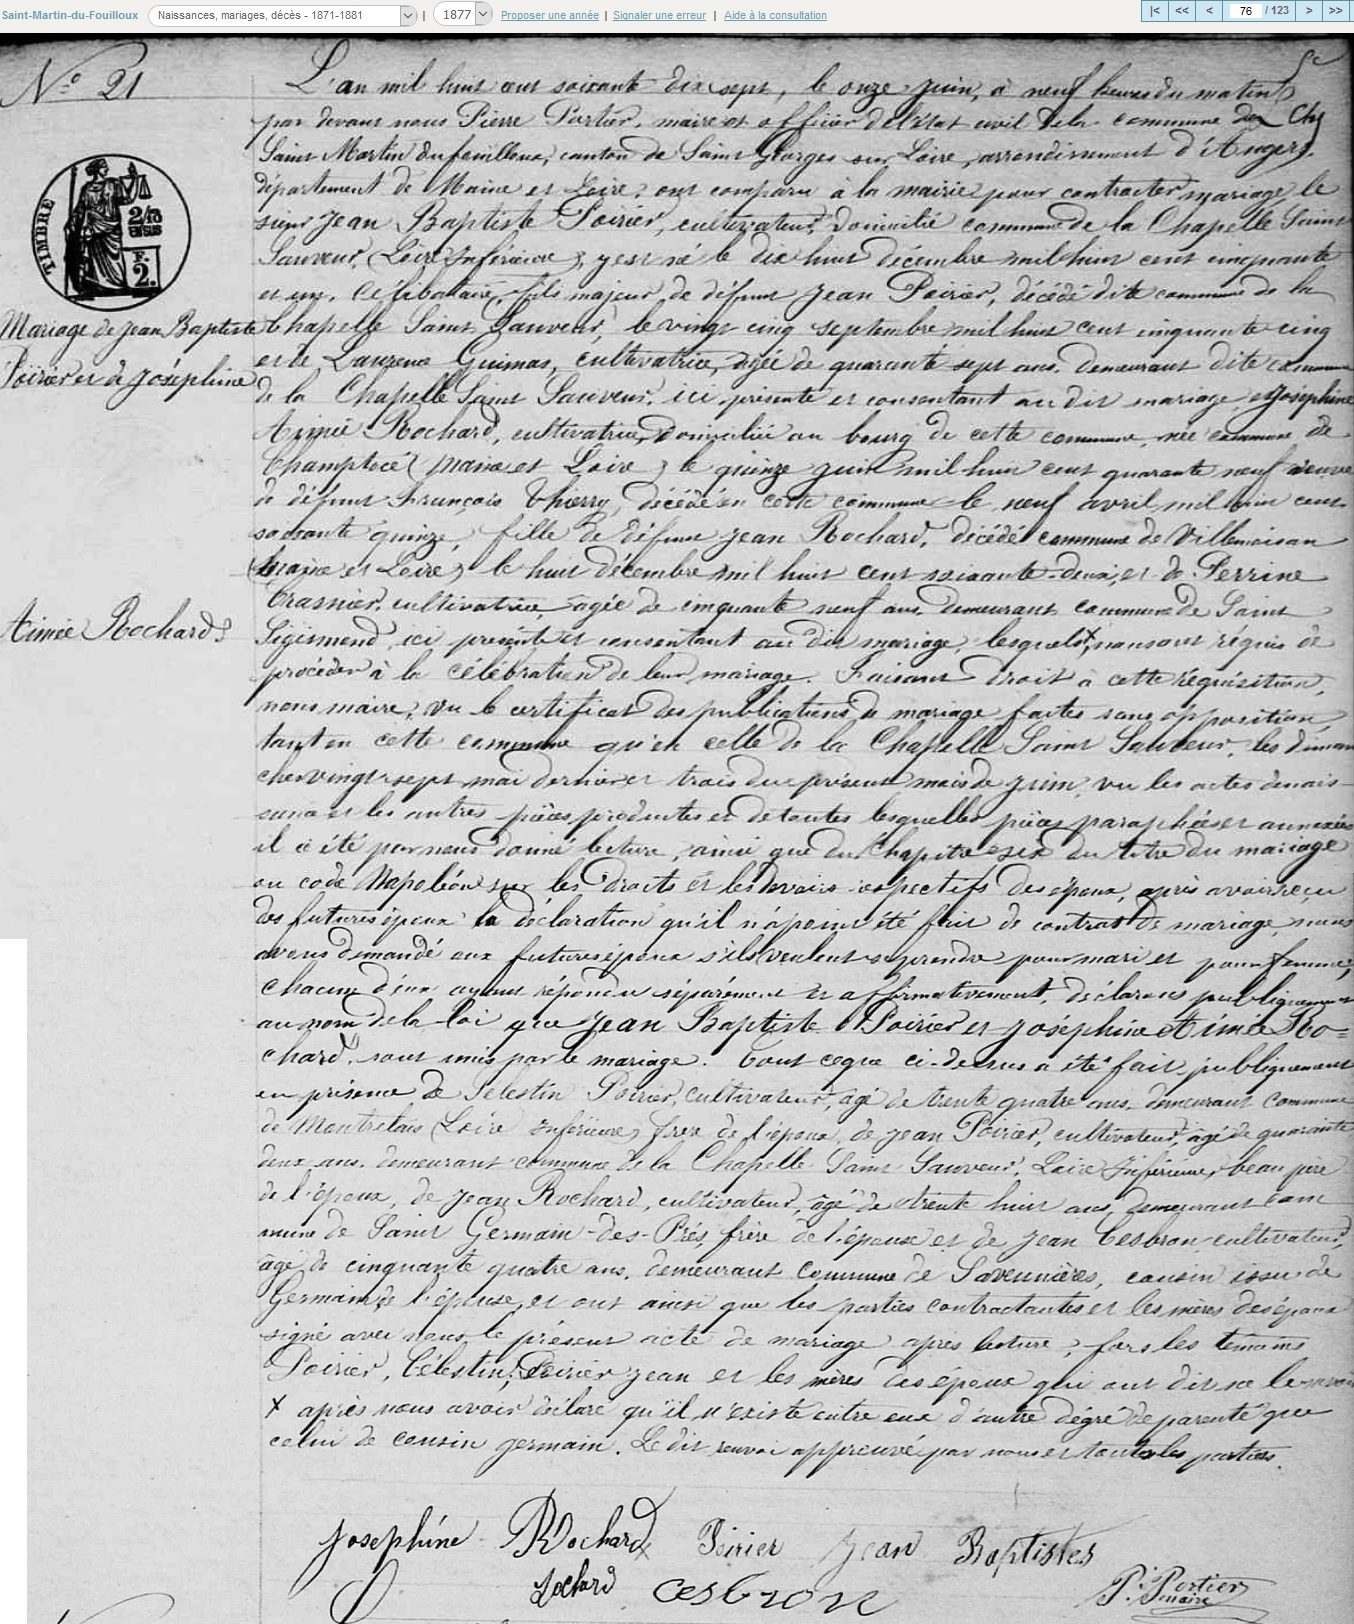 Saint-Martin-du-Fouilloux
Naissances, mariages, décès - 1871-1881
|
1877
Proposer une année | Signaler une erreur | Aide à la consultation
|< << < 76 / 123 > >>
N° 21
TIMBRE
2/10
EN SUS
F.
2.
Mariage de Jean Baptiste
Poirier et de Joséphine
Aimée Rochard
L'an mil huit cent soixante dix sept, le onze juin, à neuf heures du matin
par devant nous Pierre Portier, maire et officier de l'état civil de la commune de
Saint Martin du fouilloux, canton de Saint Georges sur Loire, arrondissement d'Angers,
département de Maine et Loire, ont comparu à la mairie pour contracter mariage, le
sieur Jean Baptiste Poirier, cultivateur, domicilié commune de la Chapelle Saint
Sauveur, (Loire Inférieure), y est né le dix huit décembre mil huit cent cinquante
et un, célibataire, fils majeur de défunt Jean Poirier, décédé dite commune de la
Chapelle Saint Sauveur, le vingt cinq septembre mil huit cent cinquante cinq
et de Guimas, cultivatrice, agée de quarante sept ans, demeurant dite commune
de la Chapelle Saint Sauveur, ici présente et consentant au dit mariage, et Joséphine
Aimée Rochard, cultivatrice, domiciliée au bourg de cette commune, née commune de
Champtocé (Maine et Loire) le quinze juin mil huit cent quarante neuf veuve
de défunt François Thierry, décédé en cette commune le neuf avril mil huit cent
soixante quinze, fille de défunt Jean Rochard, décédé commune de Villemoisan
(Maine et Loire) le huit décembre mil huit cent soixante-deux, et de Perrine
Crasnier, cultivatrice, agée de cinquante neuf ans, demeurant commune de Saint
Sigismond, ici présente et consentant au dit mariage, lesquels x nous ont requis de
procéder à la célébration de leur mariage. Faisant droit à cette réquisition,
nous maire, vu le certificat des publications de mariage faites sans opposition
tant en cette commune qu'en celle de la Chapelle Saint Sauveur, les diman
ches vingt sept mai dernier et trois du présent mois de juin, vu les actes de nais-
sance et les autres pièces produites et de toutes lesquelles pièces paraphées et annexées
il a été par nous donné lecture, ainsi que du Chapitre six du titre du mariage
au code Napoléon sur les droits et les devoirs respectifs des époux, après avoir reçu
des futurs époux la déclaration qu'il n'a point été fait de contrat de mariage, nous
avons demandé aux futurs époux s'ils veulent se prendre pour mari et pour femme,
Chacun d'eux ayant répondu séparément et affirmativement, déclarons publiquement
au nom de la loi que Jean Baptiste Poirier et Joséphine Aimée Ro=
chard, sont unis par le mariage. Tout ce que ci-dessus a été fait publiquement
en présence de Célestin Poirier, cultivateur, agé de trente quatre ans, demeurant commune
de Montrelais (Loire Inférieure) frère de l'époux, de Jean Poirier, cultivateur, agé de quarante
deux ans, demeurant commune de la Chapelle Saint Sauveur, Loire Inférieure, beau père
de l'époux, de Jean Rochard, cultivateur, âgé de trente huit ans, demeurant com
mune de Saint Germain-des-Prés, frère de l'épouse et de Jean Cesbron cultivateur,
âgé de cinquante quatre ans, demeurant commune de Savennières, cousin issu de
Germain de l'épouse, et ont ainsi que les parties contractantes et les mères des époux
signé avec nous le présent acte de mariage après lecture, fors les témoins
Poirier, Célestin, Poirier Jean et les mères des époux qui ont dit ne le savoir
x après nous avoir déclaré qu'il n'existe entre eux d'autre dégré de parenté que
celui de cousin germain. Le dit renvoi approuvé par nous et toutes les parties.
Josephine Rochard Poirier Jean Baptistes
Rochard cesbron P. Portier
maire